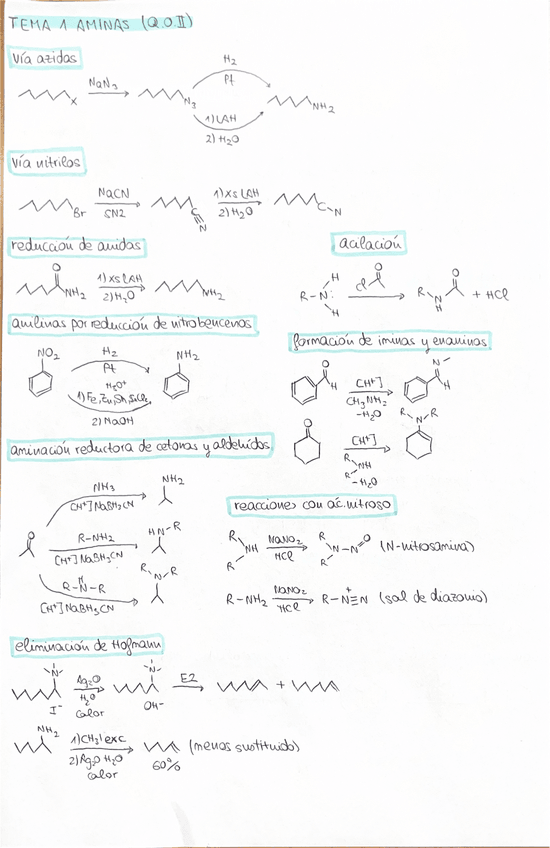 TEMA 1 AMINAS (Q.O.II)
vía azidas
NaN3
X
N3
H2
Pt
1) LAH
2) H2O
NH2
vía nitrilos
Br
NaCN
SN2
C
N
1) XS LAH
2) H2O
C
N
reducción de amidas
O
NH2
1) XS LAH
2) H2O
NH2
acilación
R-N:
H
H
O
Cl
R
N
H
O
+ HCl
anilinas por reducción de nitrobencenos
NO2
H2
Pt
H3O+
1) Fe, Zn, Sn, SnCl2
2) NaOH
NH2
formación de iminas y enaminas
O
H
[H+]
CH3NH2
-H2O
N
H
O
[H+]
R
NH
R
-H2O
R
N
R
aminación reductora de cetonas y aldehídos
O
NH3
[H+] NaBH3CN
NH2
R-NH2
[H+] NaBH3CN
HN-R
R-N-R
H
[H+] NaBH3CN
R
N-R
reacciones con ác. nitroso
R
NH
R
NaNO2
HCl
R
N-N
O
R
(N-nitrosamina)
R-NH2
NaNO2
HCl
R-N≡N
+
(sal de diazonio)
eliminación de Hofmann
N
I-
Ag2O
H2O
Calor
N
OH-
E2
+
NH2
1) CH3I exc
2) Ag2O H2O
Calor
60%
(menos sustituido)